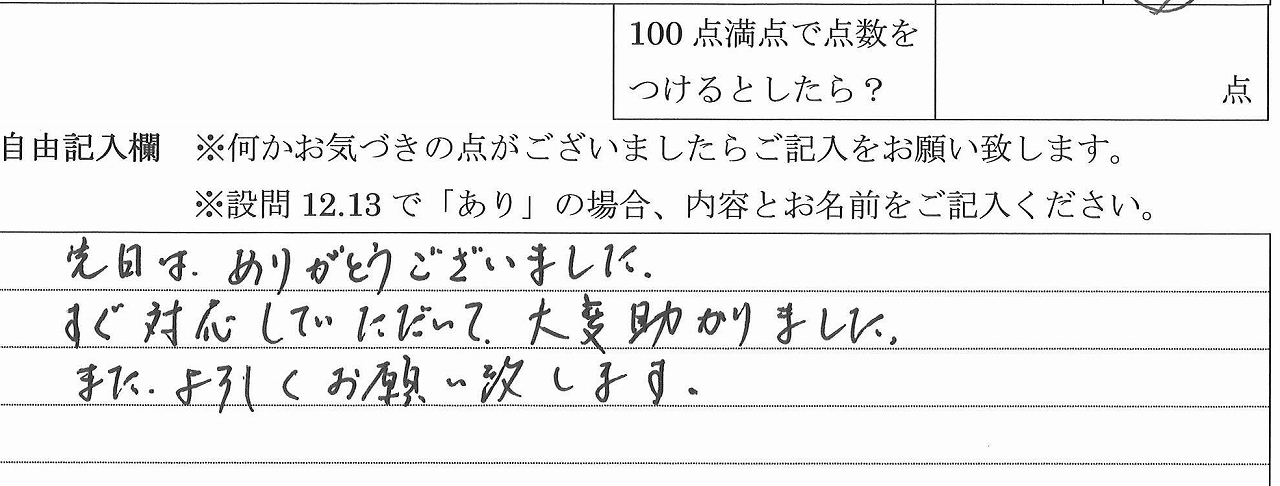 100点満点で点数を
つけるとしたら？
点
自由記入欄 ※何かお気づきの点がございましたらご記入をお願い致します。
※設問12.13で「あり」の場合、内容とお名前をご記入ください。
先日は、ありがとうございました。
すぐ対応していただいて、大変助かりました。
また、よろしくお願い致します。